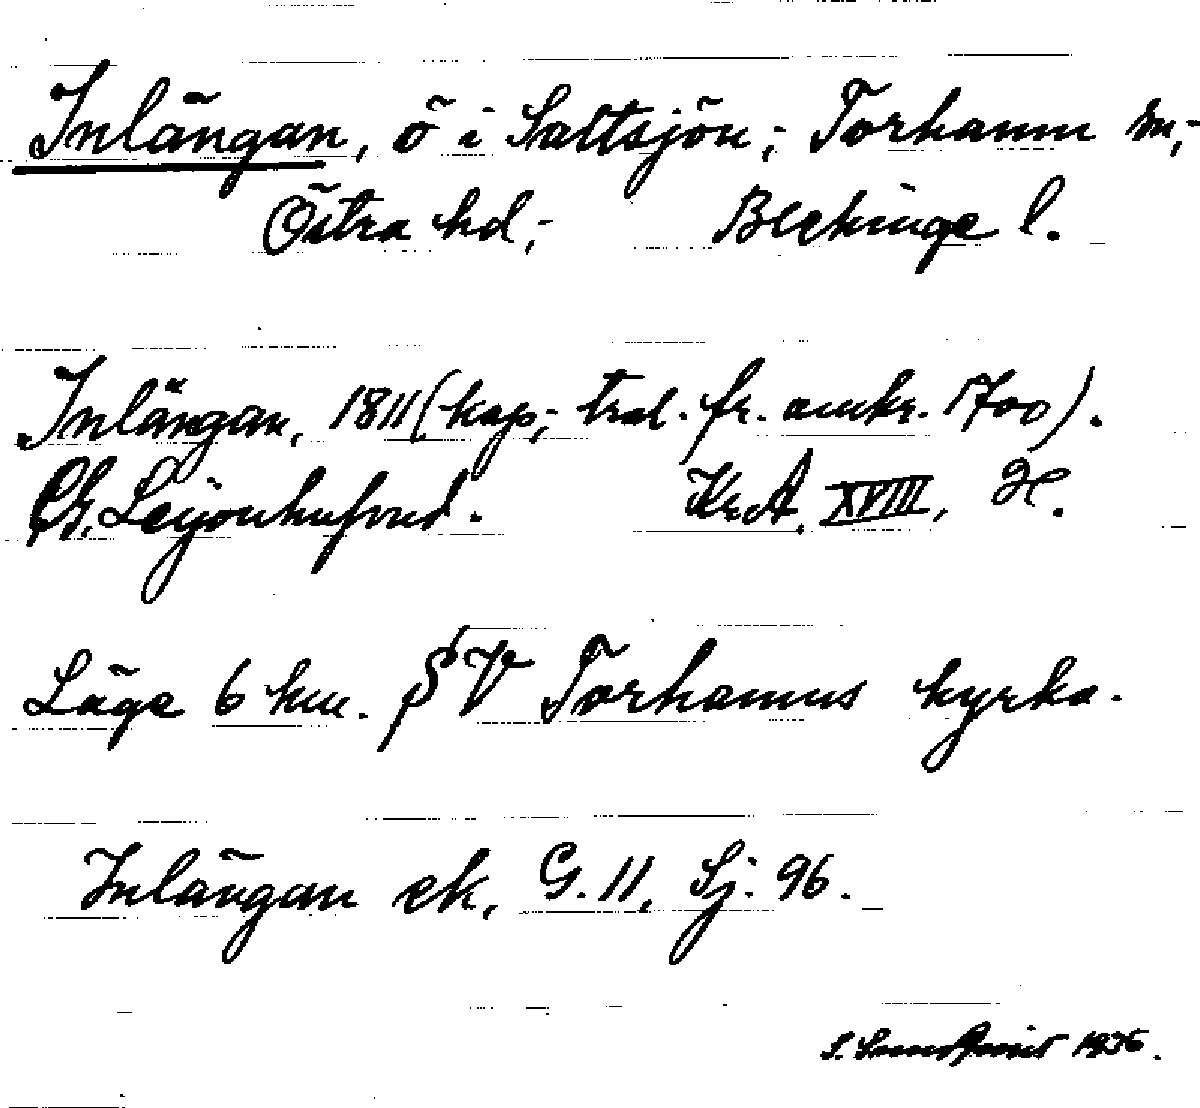 Inlängan, ö i Saltsjön; Torhamn sn;
Östra hd; Blekinge l.
Inlängan, 1811 (kop; trol. fr. omkr. 1700).
Ch. Leijonhufvud. KrA. XVIII, H.
Läge 6 km. SV Torhamns kyrka.
Inlängan ek, G. 11, Sj. 96.
S. Sundqvist 1936.